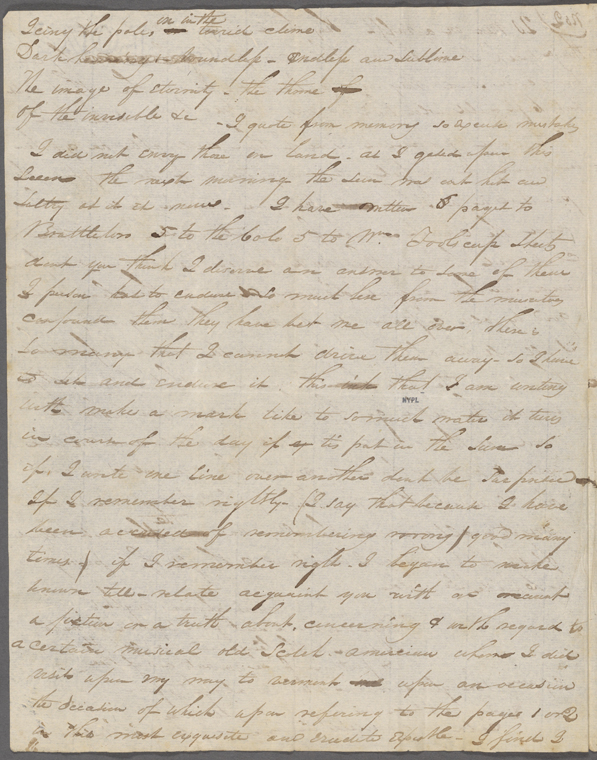 Icing the poles or in the torrid clime
Dark heaving Boundless - Endless and Sublime
The image of Eternity - the throne of
Of the invisible &c - I quote from memory so excuse mistakes
I did not envy those on land - as I gazed upon this
Scene the next morning the sun was out hot and
sultry as it is now - I have written 8 pages to
Brattleboro 5 to the Colo 5 to Wm Foolscap Sheets
dont you think I deserve an answer to some of them
I have to endure so much here from the musquitoes
confound them they have bit me all over, there is
so many that I cannot drive them away - so I have
to sit and endure it. this that I am writing
with make a mark like to so much water it turns
in course of the day if it is put in the Sun So
if I write one line over another dont be surprised
If I remember rightly (I say that because I have
been accused of remembering wrong good many
times) if I remember right. I began to make
known tell - relate acquaint you with an account
a fiction or a truth about, concerning & with regard to
a certain musical old Scotch - american where I did
visit upon my way to remark upon an occasion
the occasion of which upon refering to the pages 1 or 2
in this most exquisite and erudite Epistle - I find I
NYPL